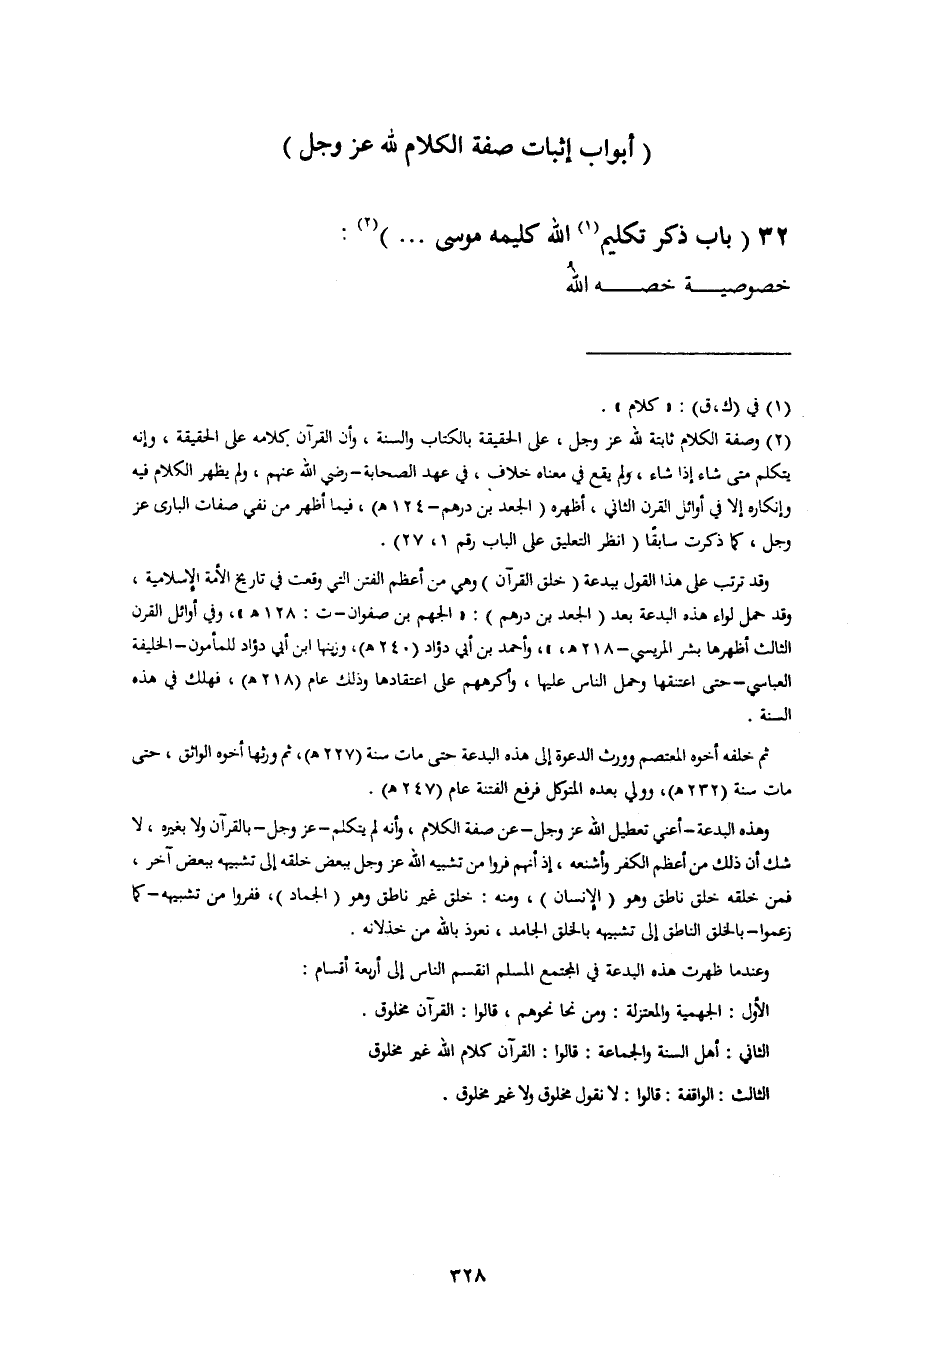 ( أبواب إثبات صفة الكلام لله عز وجل )
٣٢ ( باب ذكر تكليم(١) الله كليمه موسى ... )(٢) :
خصوصيـــة خصـــه اللهُ
(١) في (ك،ق) : « كلام » .
(٢) وصفة الكلام ثابتة لله عز وجل ، على الحقيقة بالكتاب والسنة ، وأن القرآن كلامه على الحقيقة ، وإنه
يتكلم متى شاء إذا شاء ، ولم يقع في معناه خلاف ، في عهد الصحابة–رضي الله عنهم ، ولم يظهر الكلام فيه
وإنكاره إلا في أوائل القرن الثاني ، أظهره ( الجعد بن درهم–١٢٤ هـ) ، فيما أظهر من نفي صفات البارى عز
وجل ، كما ذكرت سابقًا ( انظر التعليق على الباب رقم ١ ، ٢٧) .
وقد ترتب على هذا القول ببدعة ( خلق القرآن ) وهي من أعظم الفتن التي وقعت في تاريخ الأمة الإسلامية ،
وقد حمل لواء هذه البدعة بعد ( الجعد بن درهم ) : « الجهم بن صفوان–ت : ١٢٨ هـ »، وفي أوائل القرن
الثالث أظهرها بشر المريسي–٢١٨ هـ، »، وأحمد بن أبي دؤاد (٢٤٠ هـ)، وزينها ابن أبي دؤاد للمأمون–الخليفة
العباسي–حتى اعتنقها وحمل الناس عليها ، وأكرههم على اعتقادها وذلك عام (٢١٨ هـ) ، فهلك في هذه
السنة .
ثم خلفه أخوه المعتصم وورث الدعوة إلى هذه البدعة حتى مات سنة (٢٢٧ هـ)، ثم ورثها أخوه الواثق ، حتى
مات سنة (٢٣٢ هـ)، وولي بعده المتوكل فرفع الفتنة عام (٢٤٧ هـ) .
وهذه البدعة–أعني تعطيل الله عز وجل–عن صفة الكلام ، وأنه لم يتكلم–عز وجل–بالقرآن ولا بغيره ، لا
شك أن ذلك من أعظم الكفر وأشنعه ، إذ أنهم فروا من تشبيه الله عز وجل ببعض خلقه إلى تشبيهه ببعض آخر ،
فمن خلقه خلق ناطق وهو ( الإنسان ) ، ومنه : خلق غير ناطق وهو ( الجماد )، ففروا من تشبيهه–كما
زعموا–بالخلق الناطق إلى تشبيهه بالخلق الجامد ، نعوذ بالله من خذلانه .
وعندما ظهرت هذه البدعة في المجتمع المسلم انقسم الناس إلى أربعة أقسام :
الأول : الجهمية والمعتزلة : ومن نحا نحوهم ، قالوا : القرآن مخلوق .
الثاني : أهل السنة والجماعة : قالوا : القرآن كلام الله غير مخلوق
الثالث : الواقفة : قالوا : لا نقول مخلوق ولا غير مخلوق .
٣٢٨